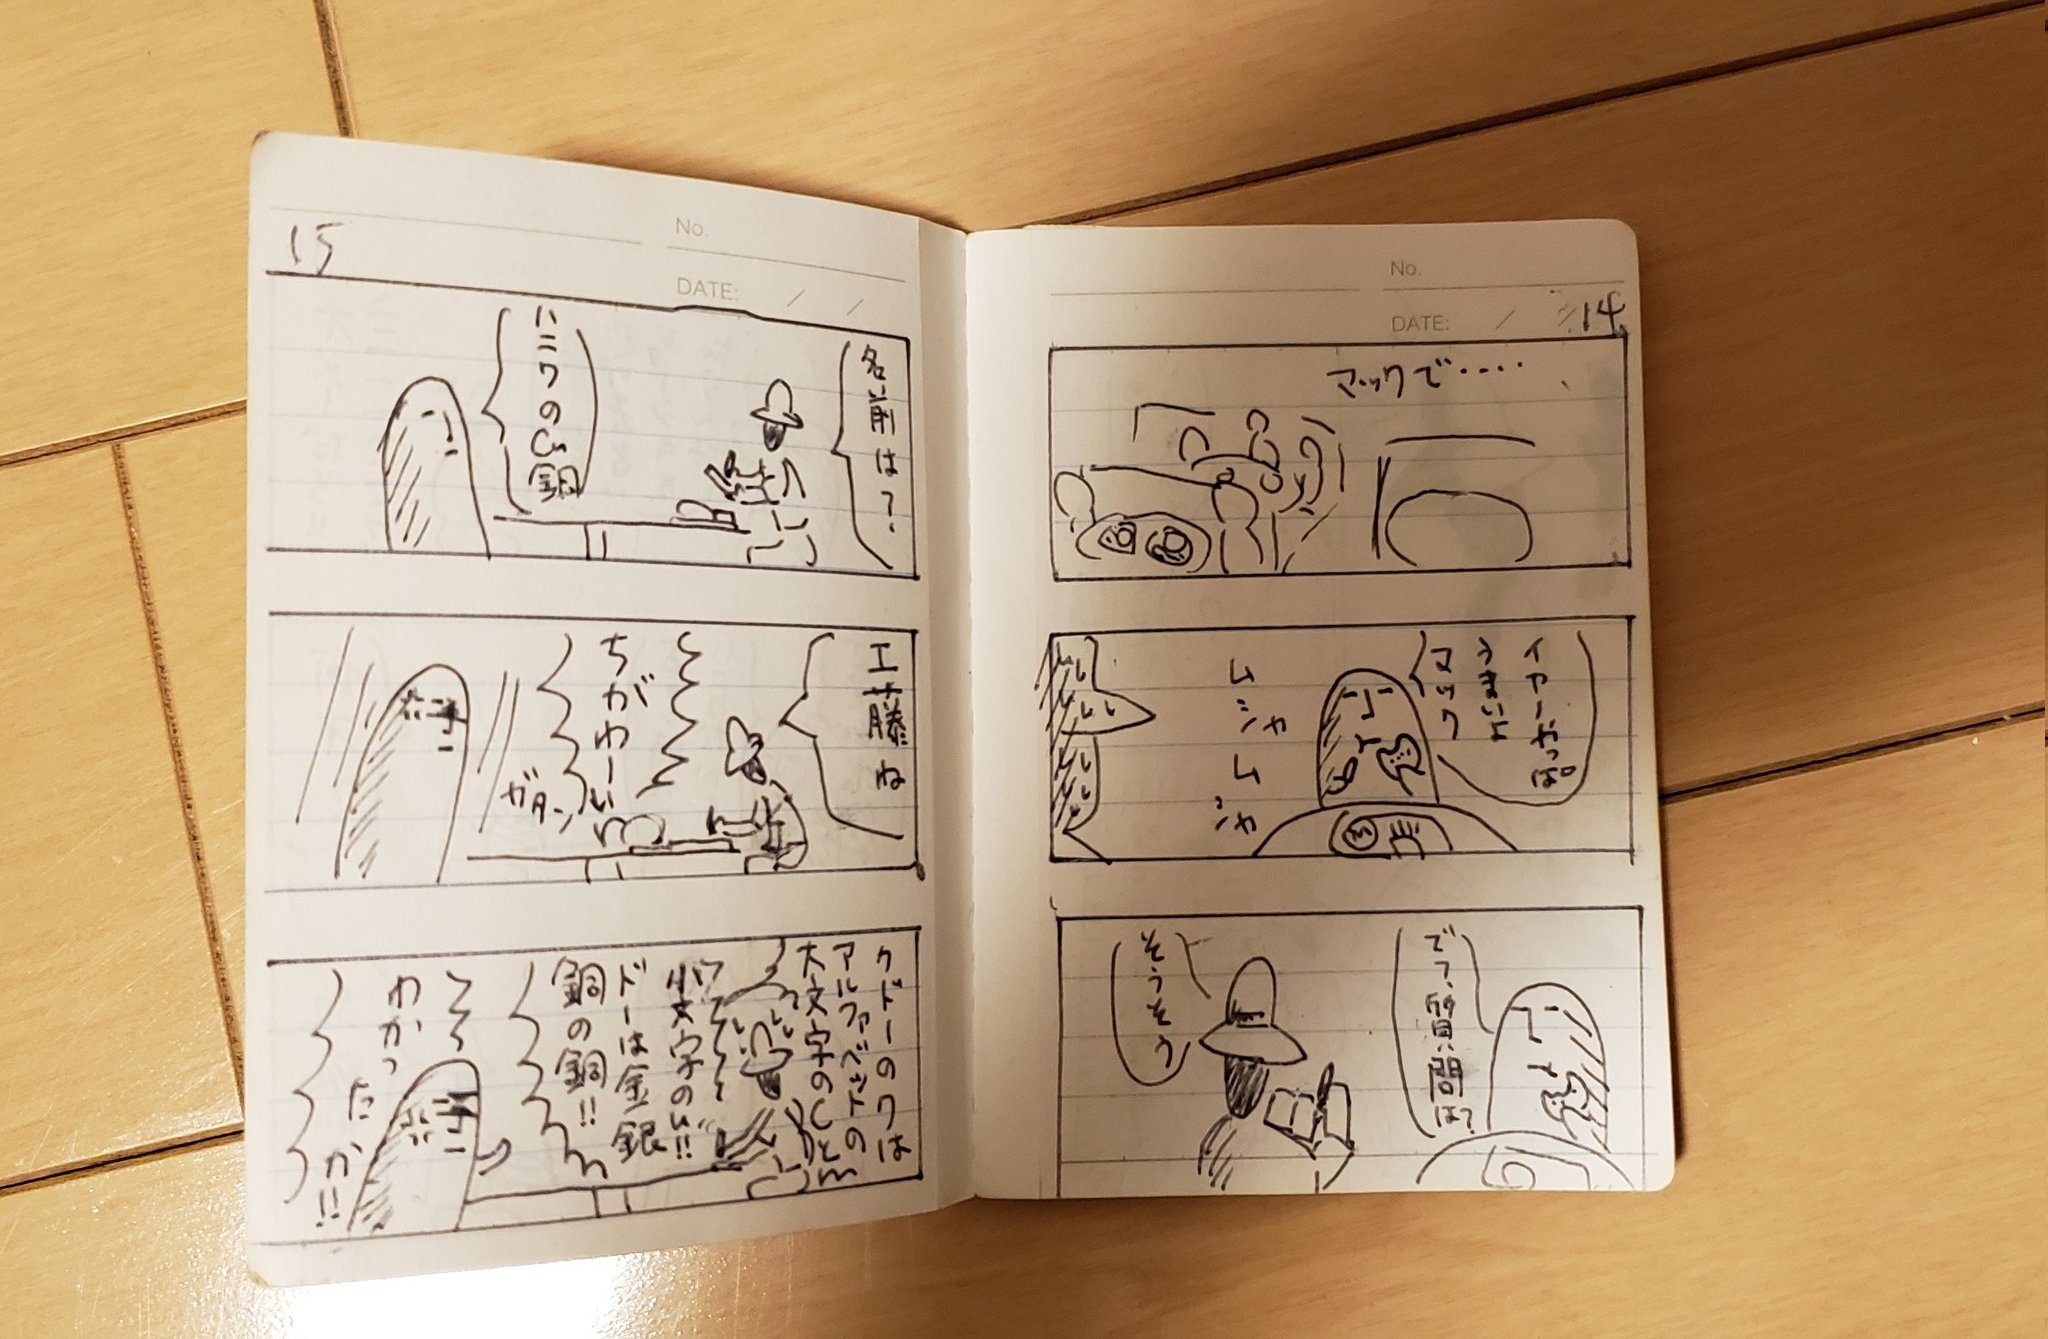 No.
DATE: / /
14
マックで‥‥
イヤーやっぱ
うまいよ
マック
ムシャ
ムシャ
でっ、質問は?
そうそう
15
No.
DATE: / /
名前は?
ハニワのCu銅
工藤ね
ちがわーい
ガタン
クドーのクは
アルファベットの
大文字のCと
小文字のu!!
ドーは金銀
銅の銅!!
わかったか!!